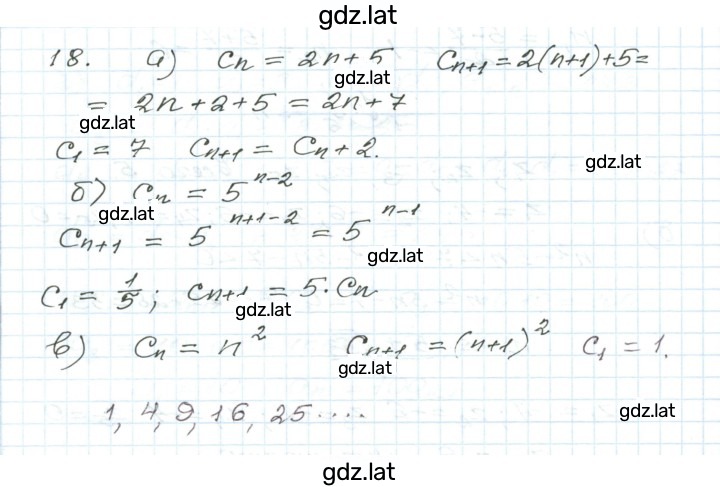 gdz.lat
18. а) Cn = 2n + 5 Cn+1 = 2(n+1)+5 =
gdz.lat
= 2n + 2 + 5 = 2n + 7
gdz.lat
C1 = 7 Cn+1 = Cn + 2.
gdz.lat
б) Cn = 5^n-2
gdz.lat
Cn+1 = 5^n+1-2 = 5^n-1
gdz.lat
C1 = 1/5; Cn+1 = 5·Cn
gdz.lat
в) Cn = n^2 Cn+1 = (n+1)^2 C1 = 1.
gdz.lat
1, 4, 9, 16, 25 ....
gdz.lat
gdz.lat